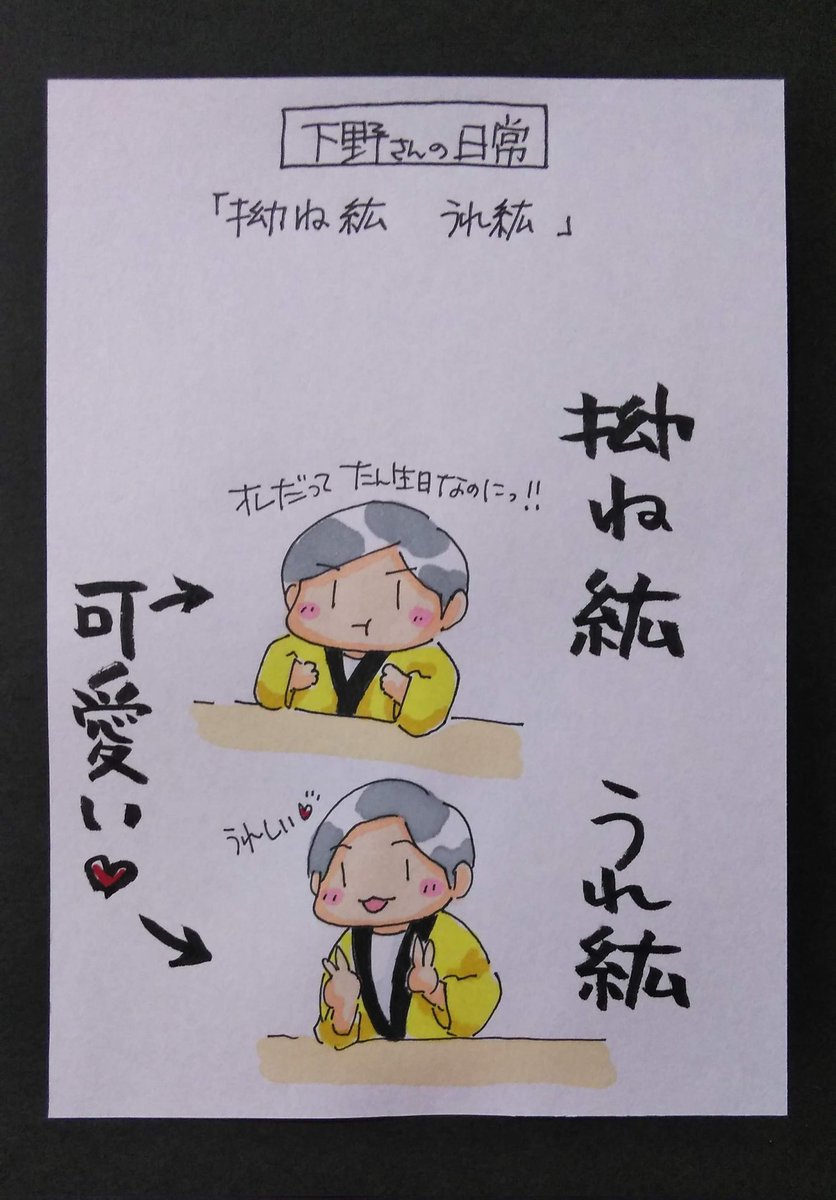 下野さんの日常
「拗ね紘 うれ紘」
拗ね紘
オレだって たん生日なのにっ!!
可愛い♥
うれ紘
うれしい♥